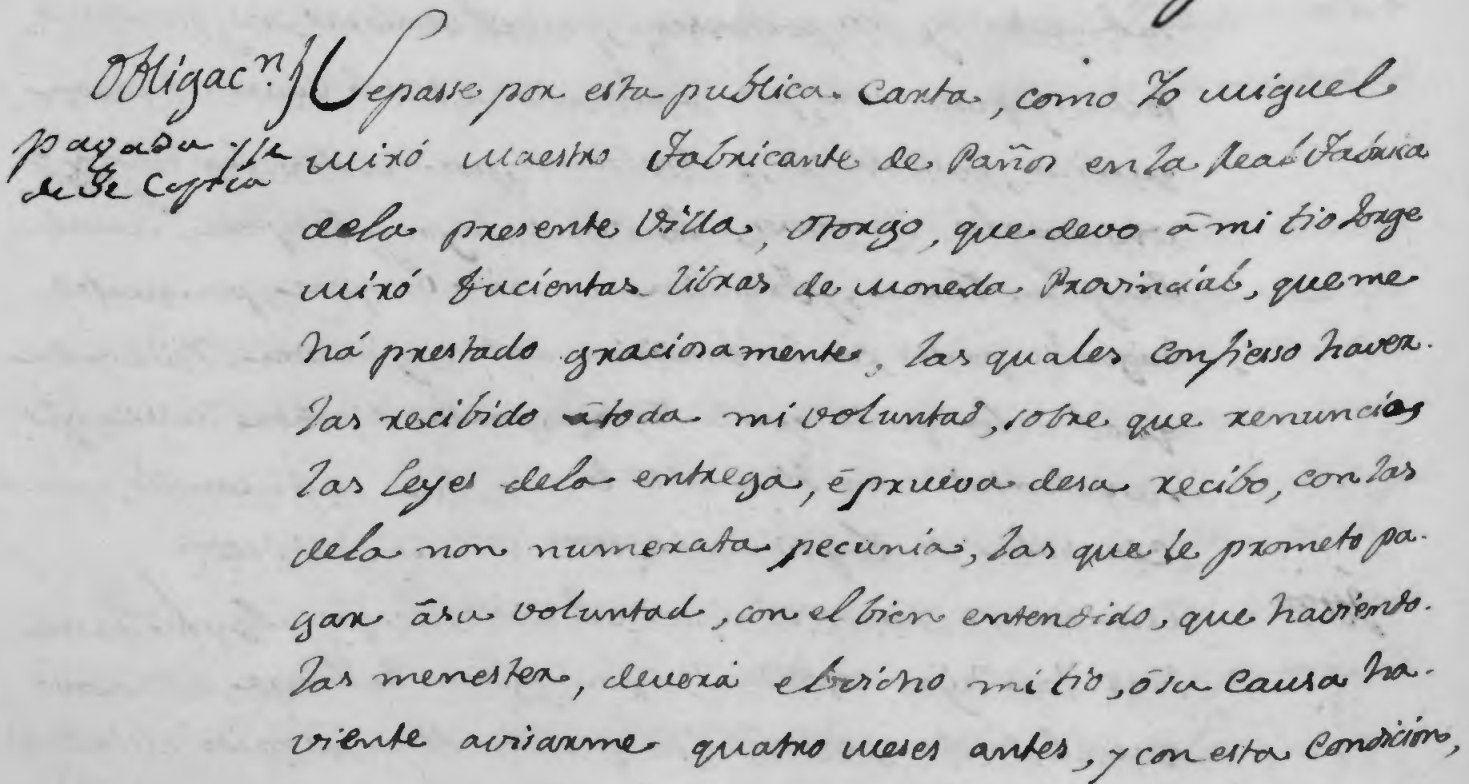 Obligac.n
pagada y se
de Se Copia
Sepasse por esta publica Carta, como Yo Miguel
Miró Maestro Fabricante de Paños en la Real Fabrica
dela presente Villa, Otorgo, que devo â mi tio Jorge
Miró Ducientas libras de Moneda Provincial, que me
há prestado graciosamente, las quales Confiesso haver-
las recibido âtoda mi voluntad, sobre que renuncio
las Leyes dela entrega, ê prueva desu recibo, con las
dela non numerata pecunia, las que le prometo pa-
gar âsu voluntad, con el bien entendido, que haviendo-
las menester, deverá el dicho mi tio, ôsu Causa ha-
viente avisarme quatro Meses antes, y con esta Condicion,